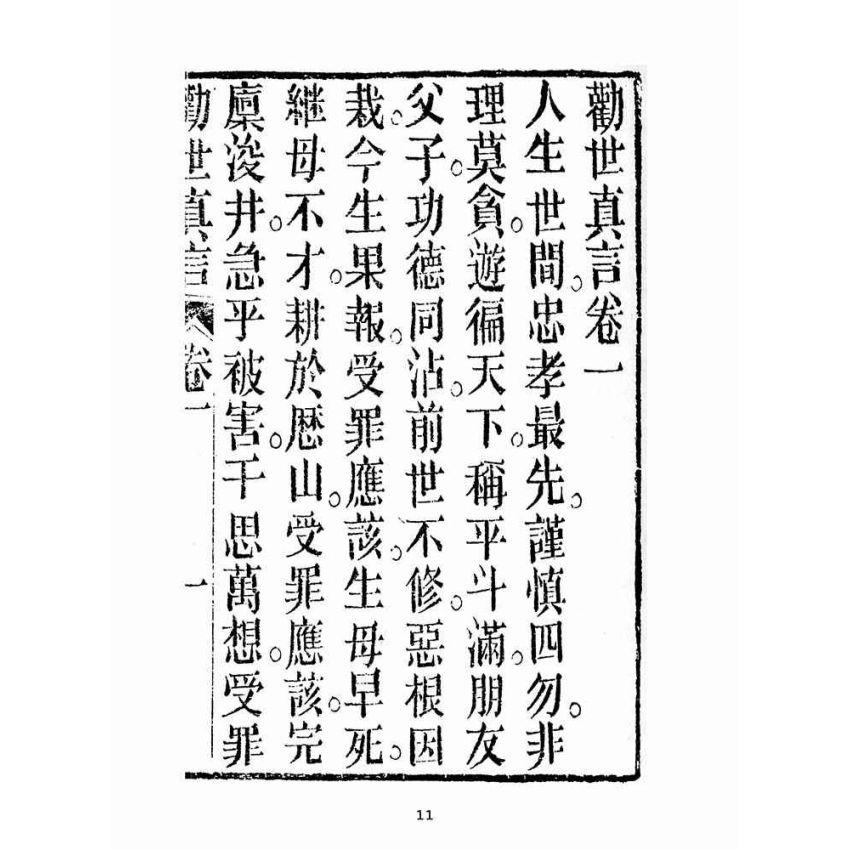 勸世真言卷一
人生世間。忠孝最先。謹慎四勿。非
理莫貪。遊徧天下。稱平斗滿。朋友
父子。功德同沾。前世不修。惡根因
栽。今生果報。受罪應該。生母早死。
継母不才。耕於厯山。受罪應該。完
廩浚井。急乎被害。千思萬想。受罪
勸世真言 卷一 一
11